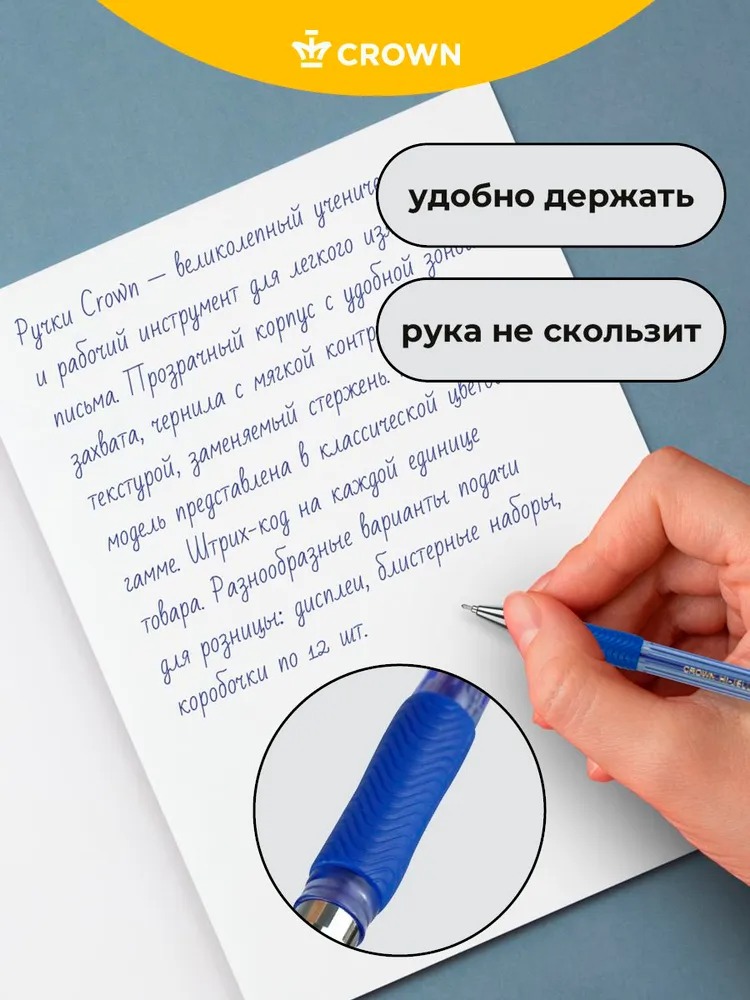 CROWN
удобно держать
рука не скользит
Ручки Crown — великолепный
и рабочий инструмент для легкого
письма. Прозрачный корпус с удобной зоной
захвата, чернила с мягкой
текстурой, заменяемый стержень.
модель представлена в классической
гамме. Штрих-код на каждой единице
товара. Разнообразные варианты подачи
для розницы: дисплеи, блистерные наборы,
коробочки по 12 шт.
CROWN